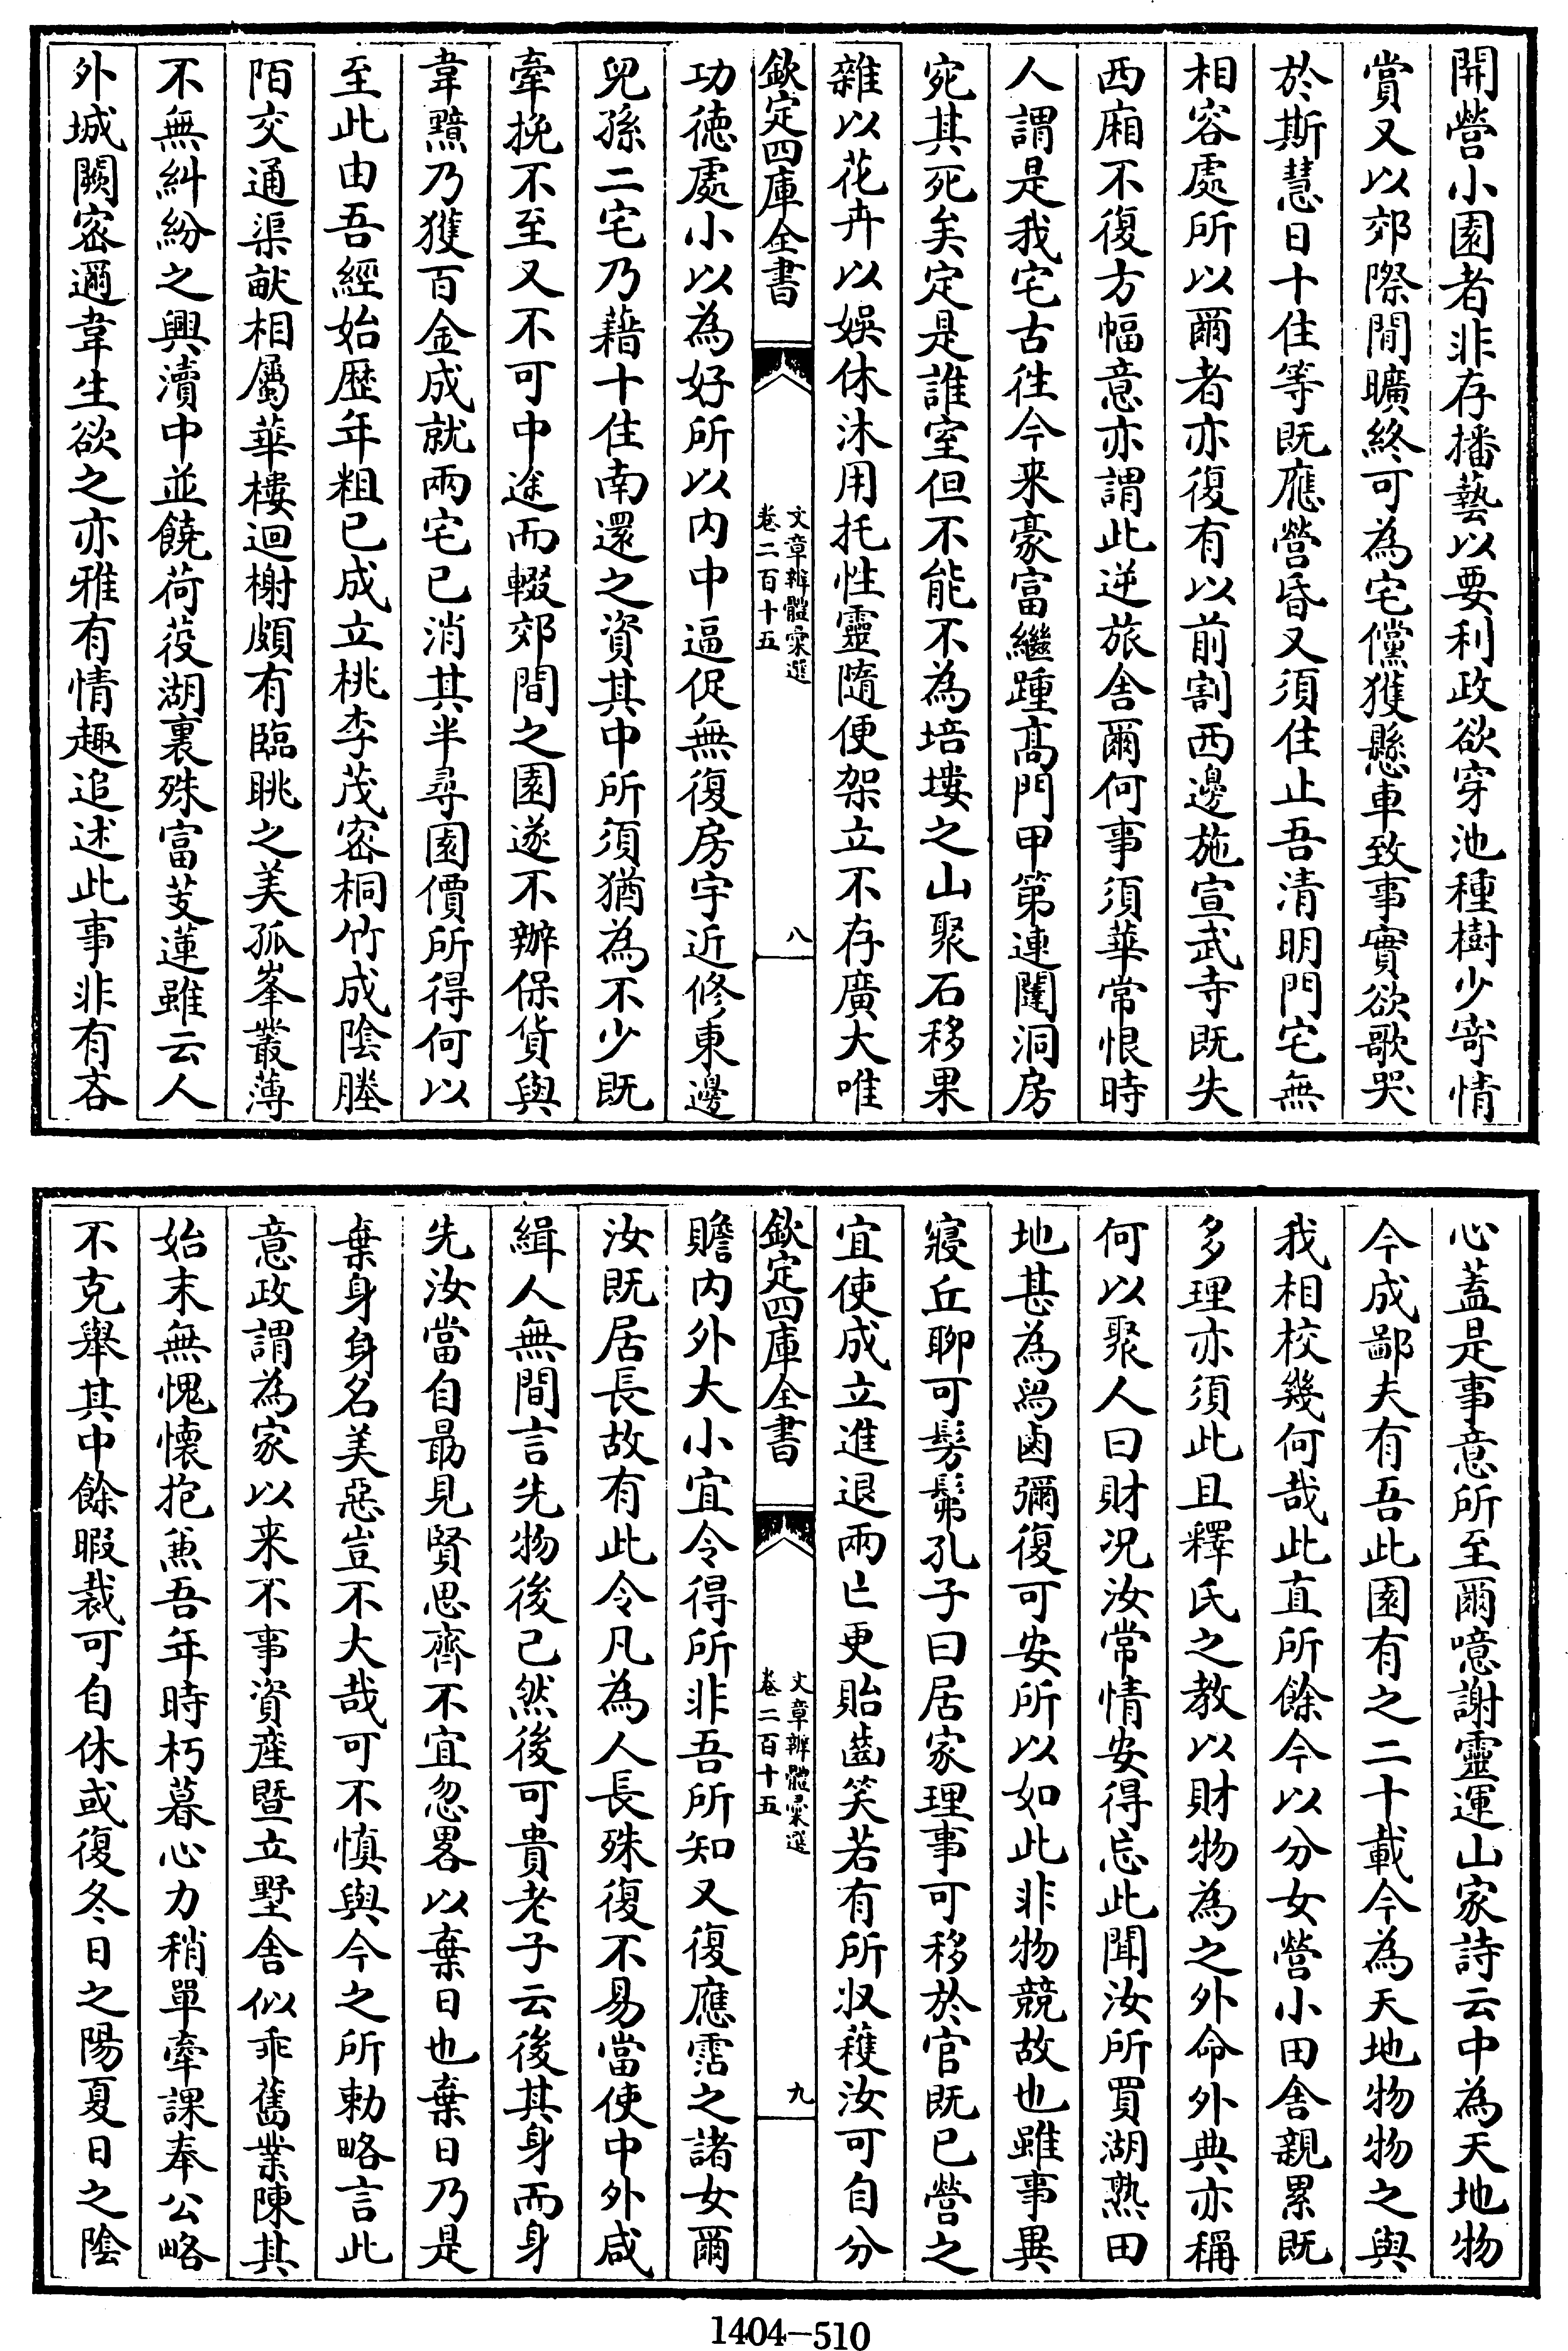 開營小園者非存播藝以要利政欲穿池種樹少寄情
賞又以郊際閒曠終可為宅儻獲懸車致事實欲歌哭
於斯慧日十住等既應營昏又須住止吾清明門宅無
相容處所以爾者亦復有以前割西邊施宣武寺既失
西廂不復方幅意亦謂此逆旅舍爾何事須華常恨時
人謂是我宅古往今来豪富繼踵髙門甲第連闥洞房
宛其死矣定是誰室但不能不為培塿之山聚石移果
雜以花卉以娛休沐用托性靈隨便架立不存廣大唯
欽定四庫全書
文章辨體彚選
卷二百十五
八
功徳處小以為好所以内中逼促無復房宇近修東邊
兒孫二宅乃藉十住南還之資其中所須猶為不少既
牽挽不至又不可中途而輟郊間之園遂不辦保貨與
韋黯乃獲百金成就兩宅已消其半尋園價所得何以
至此由吾經始歴年粗已成立桃李茂宻桐竹成陰塍
陌交通渠畎相屬華樓迴榭頗有臨眺之美孤峯叢薄
不無糾紛之興瀆中並饒荷葰湖裏殊富芰蓮雖云人
外城闕宻邇韋生欲之亦雅有情趣追述此事非有吝
心蓋是事意所至爾噫謝靈運山家詩云中為天地物
今成鄙夫有吾此園有之二十載今為天地物物之與
我相校幾何哉此直所餘今以分女營小田舍親累既
多理亦須此且釋氏之教以財物為之外命外典亦稱
何以聚人曰財况汝常情安得忘此聞汝所買湖熟田
地甚為舄鹵彌復可安所以如此非物競故也雖事異
寢丘聊可髣髴孔子曰居家理事可移於官既已營之
宜使成立進退兩亡更貽齒笑若有所収穫汝可自分
欽定四庫全書
文章辨體彚選
卷二百十五
九
贍内外大小宜令得所非吾所知又復應霑之諸女爾
汝既居長故有此令凡為人長殊復不易當使中外咸
緝人無間言先物後己然後可貴老子云後其身而身
先汝當自勗見賢思齊不宜忽畧以棄日也棄日乃是
棄身身名美惡豈不大哉可不慎與今之所勅略言此
意政謂為家以来不事資產暨立墅舍似乖舊業陳其
始末無愧懷抱兼吾年時朽暮心力稍單牽課奉公略
不克舉其中餘暇裁可自休或復冬日之陽夏日之陰
1404—510